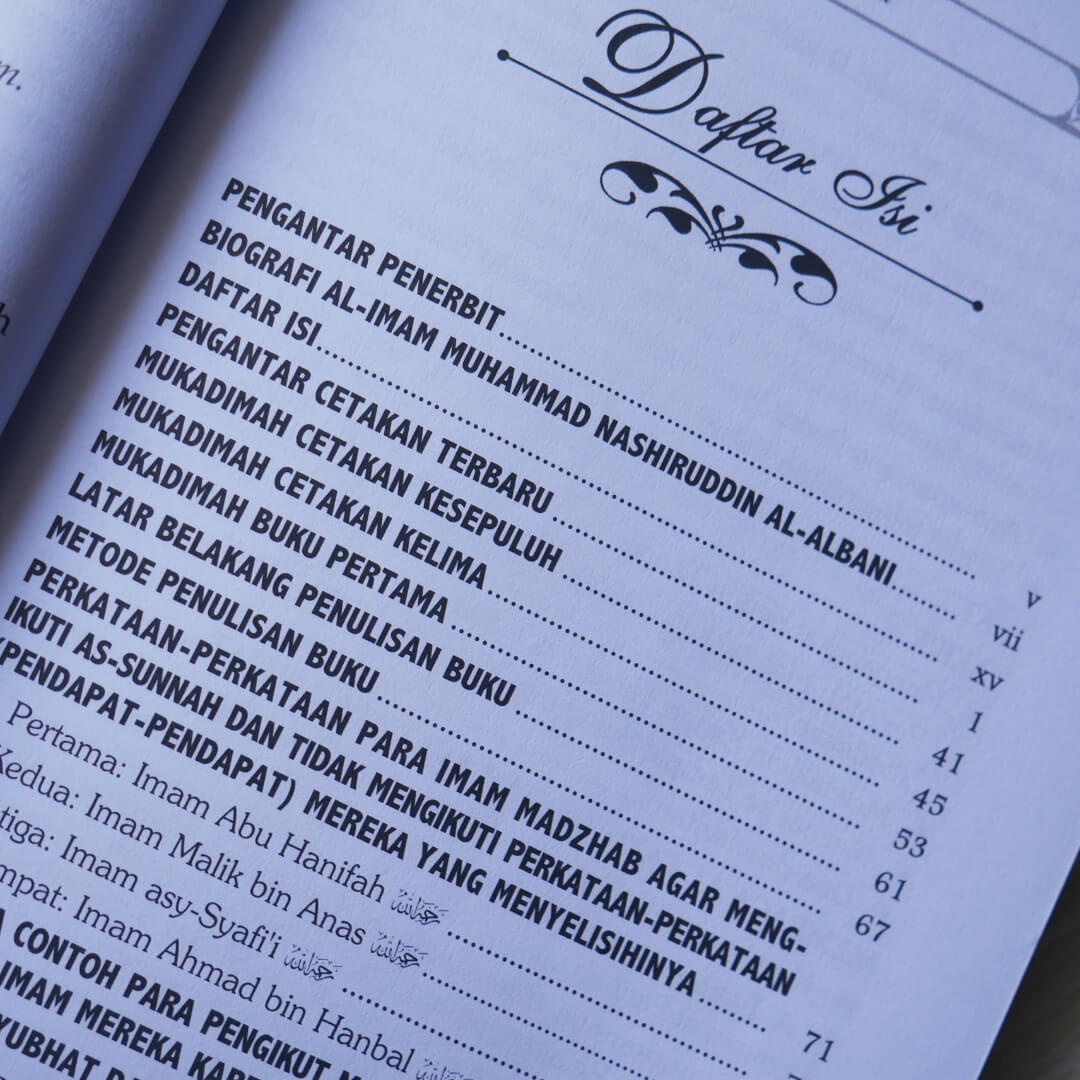 m.
h
Daftar Isi
PENGANTAR PENERBIT........ v
BIOGRAFI AL-IMAM MUHAMMAD NASHIRUDDIN AL-ALBANI........ vii
DAFTAR ISI........ xv
PENGANTAR CETAKAN TERBARU........ 1
MUKADIMAH CETAKAN KESEPULUH........ 41
MUKADIMAH CETAKAN KELIMA........ 45
MUKADIMAH BUKU PERTAMA........ 53
LATAR BELAKANG PENULISAN BUKU........ 61
METODE PENULISAN BUKU........ 67
PERKATAAN-PERKATAAN PARA IMAM MADZHAB AGAR MENG-
IKUTI AS-SUNNAH DAN TIDAK MENGIKUTI PERKATAAN-PERKATAAN
(PENDAPAT-PENDAPAT) MEREKA YANG MENYELISIHINYA........ 71
Pertama: Imam Abu Hanifah رحمه الله........
Kedua: Imam Malik bin Anas رحمه الله........
tiga: Imam asy-Syafi'i رحمه الله........
mpat: Imam Ahmad bin Hanbal رحمه الله
CONTOH PARA PENGIKUT
IMAM MEREKA